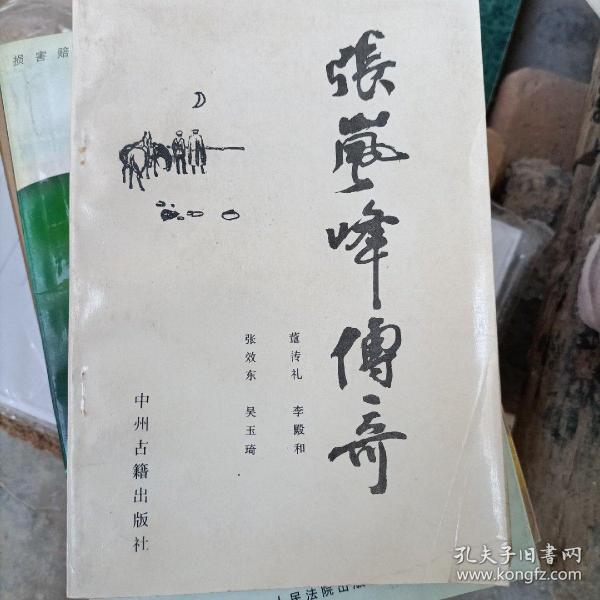 張嵐峰傳奇
董传礼 李殿和
张效东 吴玉琦
中州古籍出版社
损害赔
人民法院出版
孔夫子旧书网
www.kongfz.com